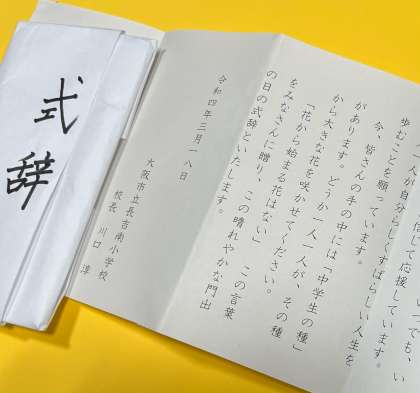 っても、い
信じて応援しています。
人が自分らしくすばらしい人生を
歩むことを願っています。
今、皆さんの手の中には「中学生の種」
があります。どうか一人一人が、その種
から大きな花を咲かせてください。
「花から始まる花はない」 この言葉
をみなさんに贈り、この晴れやかな門出
の日の式辞といたします。
令和四年三月一八日
大阪市立長吉南小学校
校長 川口 淳
式辞